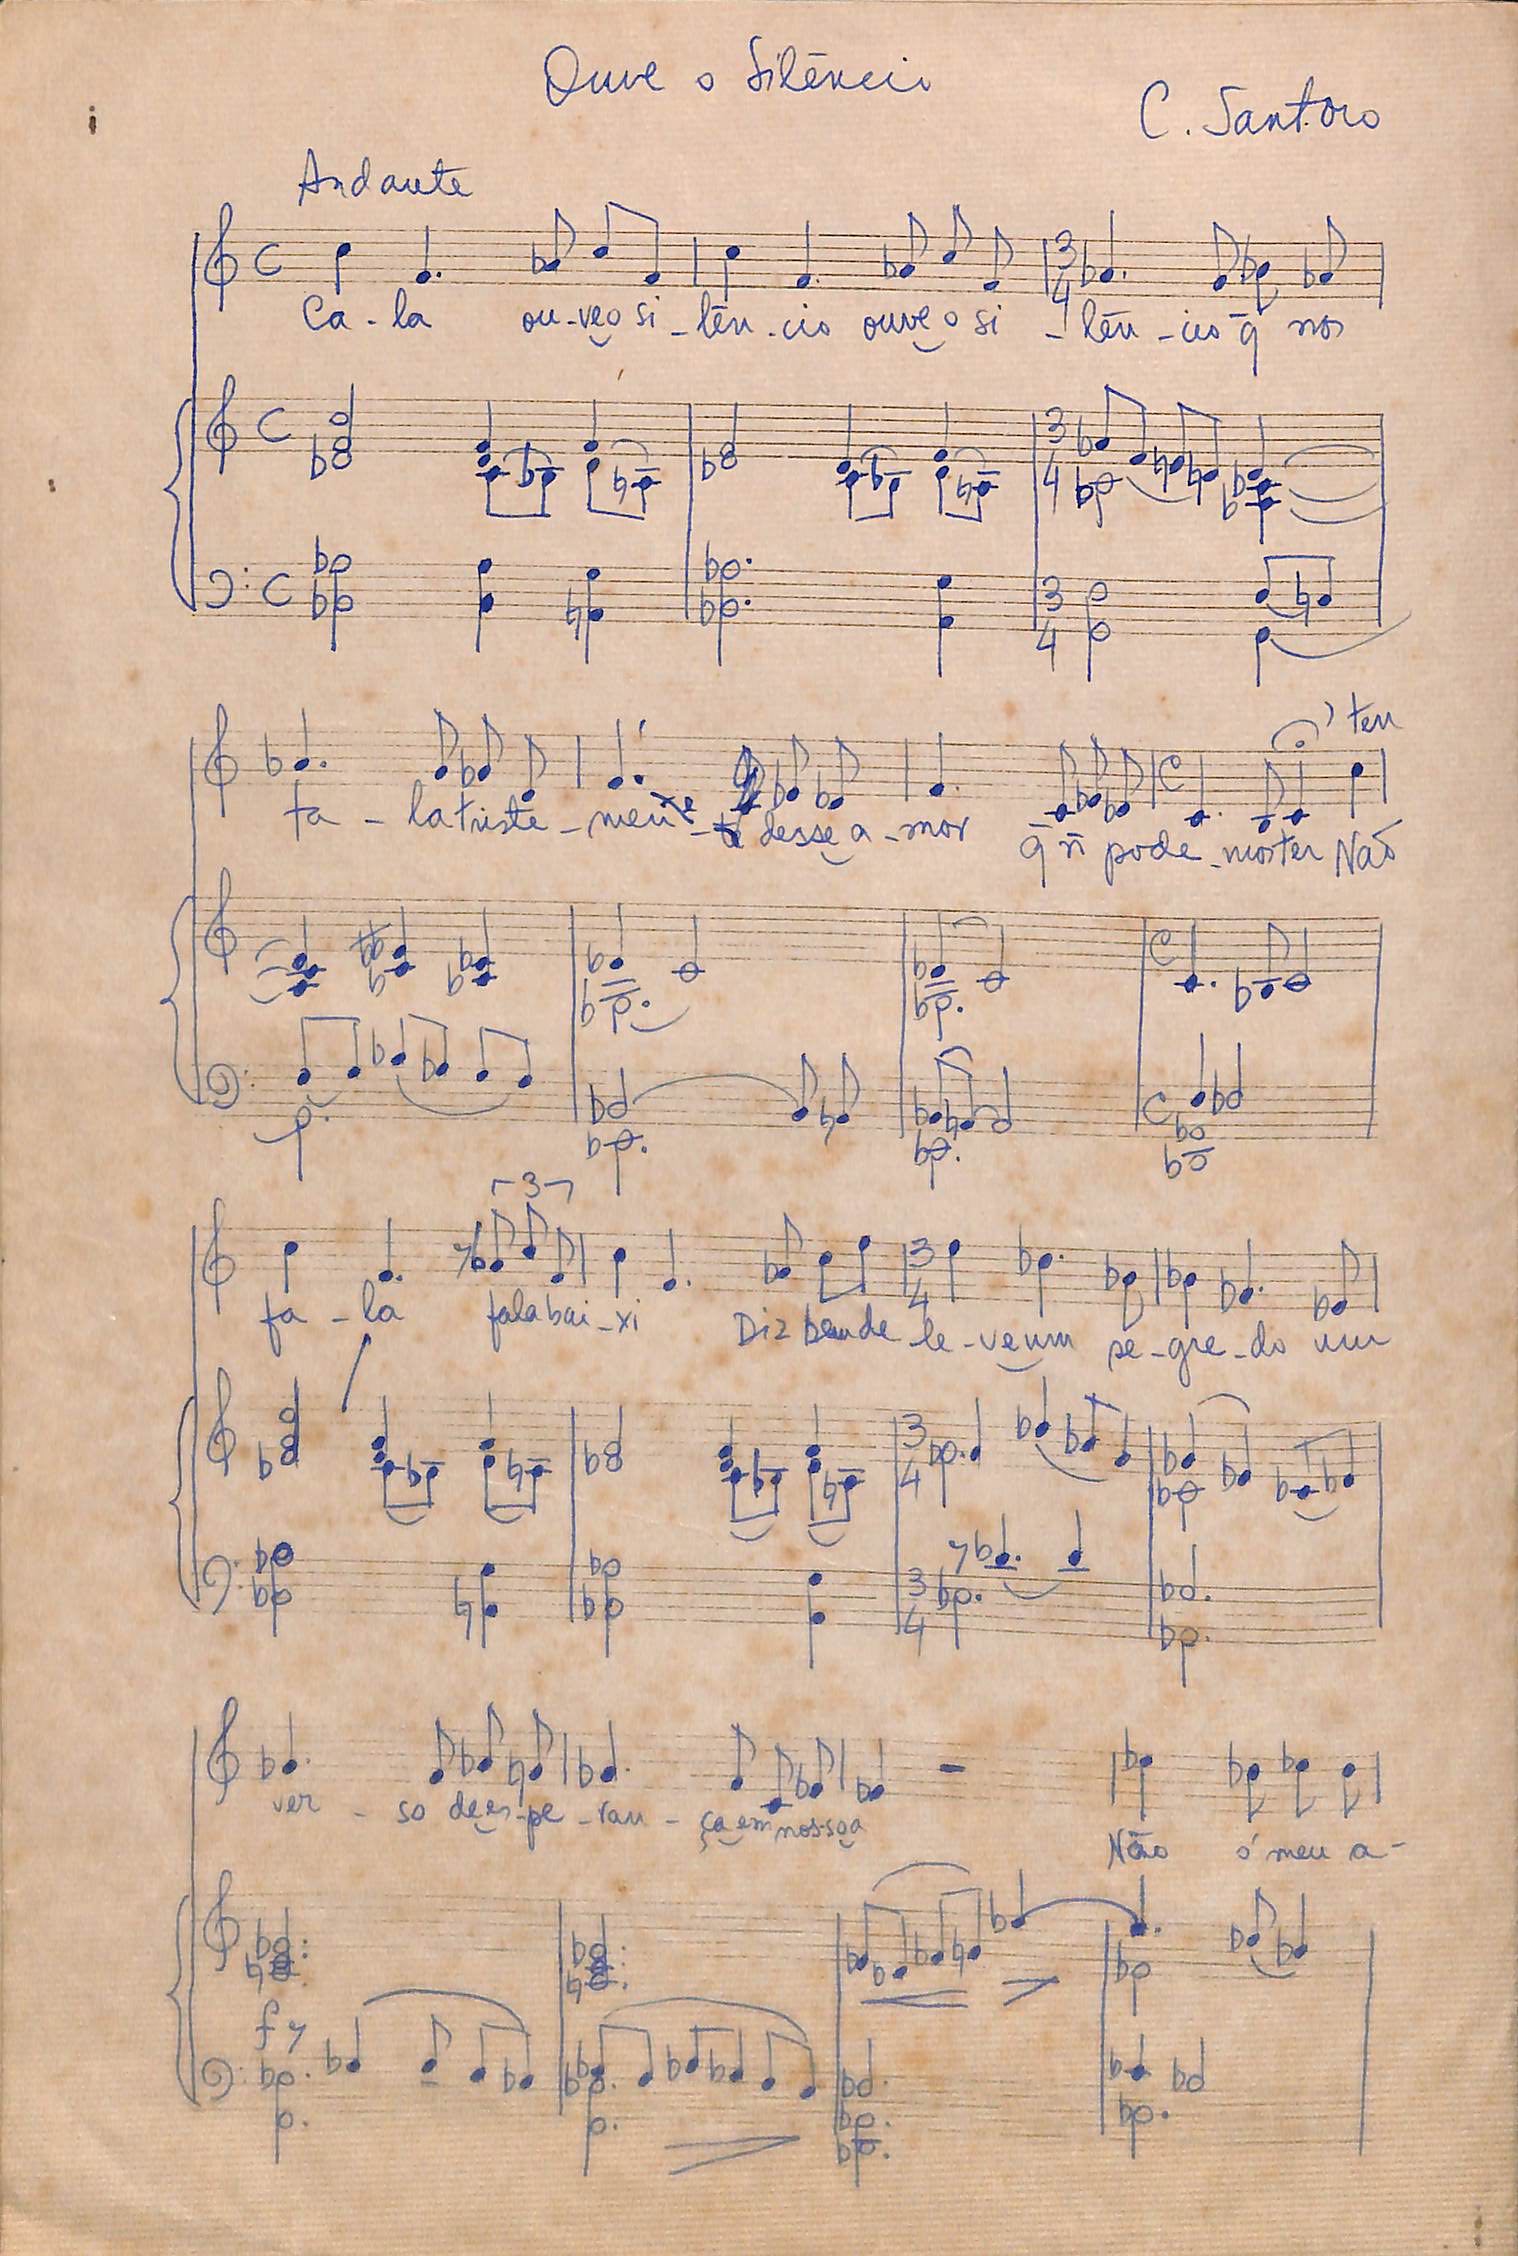 Ouve o Silêncio
C. Santoro
Andante
Ca - la ou - ve o si - lên - cio ouve o si - lên - cio q̄ nos
ten
fa - la triste - men - te desse a - mor q̄ ñ pode mos ter Não
3
fa - la fala bai - xi Diz bem de le - ve um se - gre - do um
ver - so de es - pe - ran - ça em nos - so a
Não ó meu a -
f